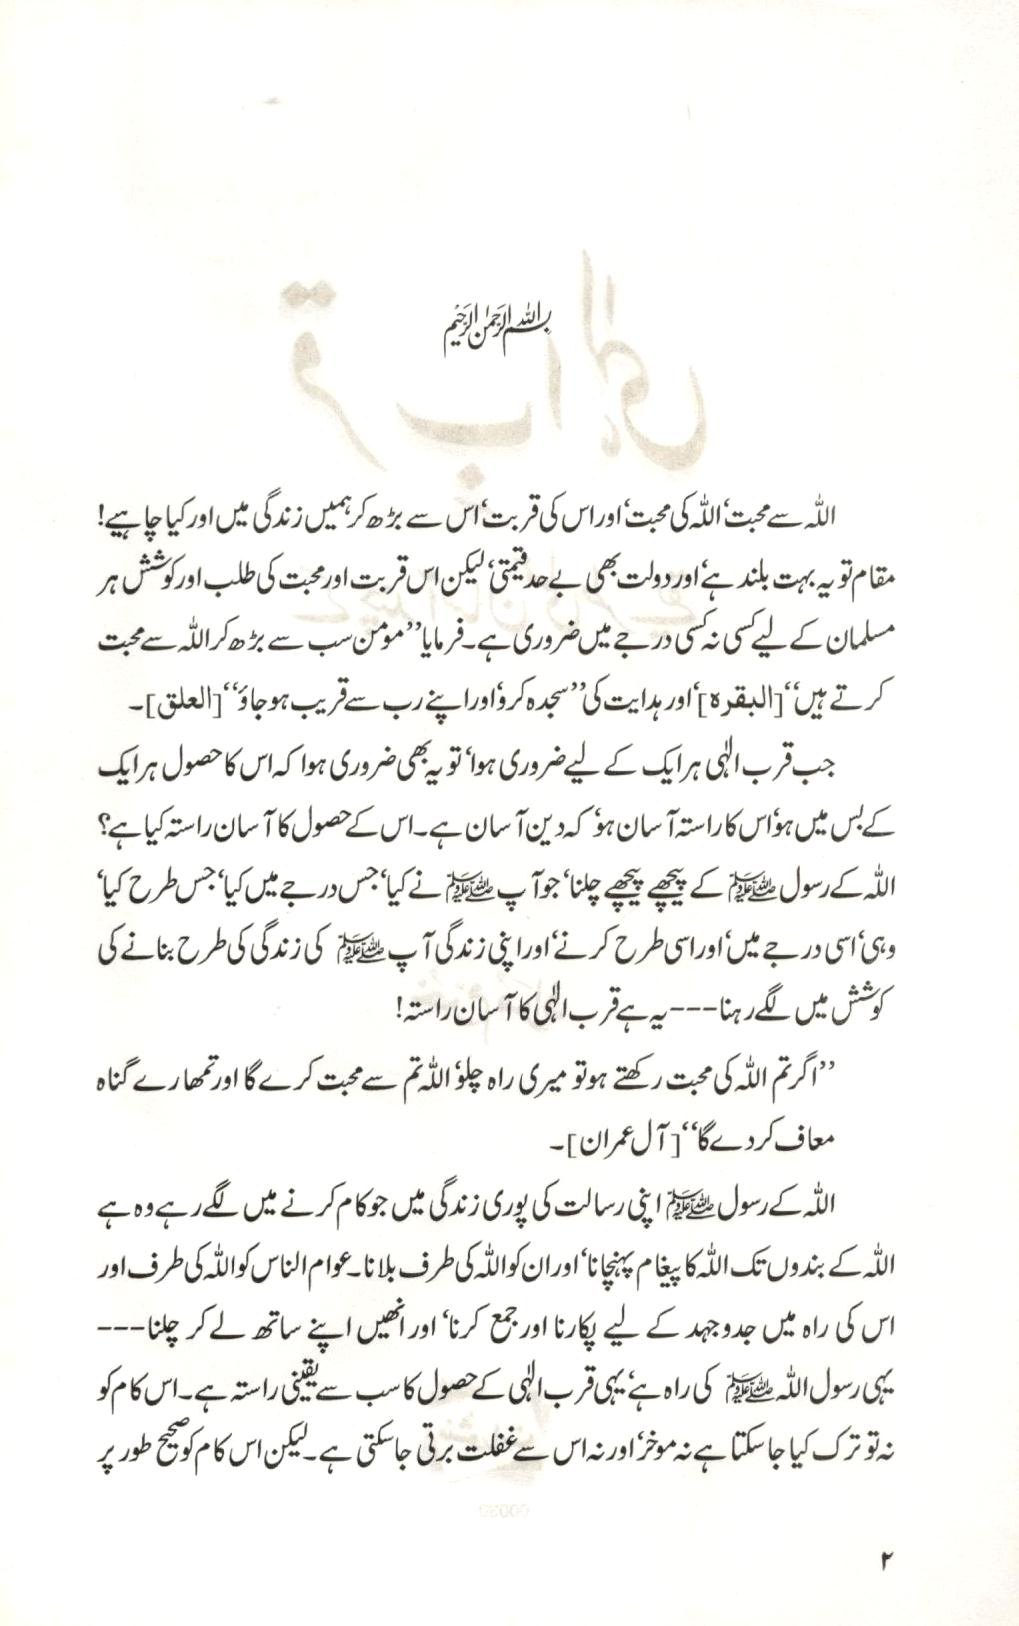 بسم اللہ الرحمٰن الرحیم
اللہ سے محبت‘ اللہ کی محبت‘ اور اس کی قربت‘ اس سے بڑھ کر ہمیں زندگی میں اور کیا چاہیے!
مقام تو یہ بہت بلند ہے‘ اور دولت بھی بے حد قیمتی‘ لیکن اس قربت اور محبت کی طلب اور کوشش ہر
مسلمان کے لیے کسی نہ کسی درجے میں ضروری ہے۔ فرمایا ’’مومن سب سے بڑھ کر اللہ سے محبت
کرتے ہیں‘‘ [البقرہ]‘ اور ہدایت کی ’’سجدہ کرو‘ اور اپنے رب سے قریب ہو جاؤ‘‘ [العلق]۔
جب قرب الٰہی ہر ایک کے لیے ضروری ہوا‘ تو یہ بھی ضروری ہوا کہ اس کا حصول ہر ایک
کے بس میں ہو‘ اس کا راستہ آسان ہو‘ کہ دین آسان ہے۔ اس کے حصول کا آسان راستہ کیا ہے؟
اللہ کے رسول ﷺ کے پیچھے پیچھے چلنا‘ جو آپ ﷺ نے کیا‘ جس درجے میں کیا‘ جس طرح کیا‘
وہی‘ اسی درجے میں‘ اور اسی طرح کرنے‘ اور اپنی زندگی آپ ﷺ کی زندگی کی طرح بنانے کی
کوشش میں لگے رہنا --- یہ ہے قرب الٰہی کا آسان راستہ!
’’اگر تم اللہ کی محبت رکھتے ہو تو میری راہ چلو‘ اللہ تم سے محبت کرے گا اور تمھارے گناہ
معاف کر دے گا‘‘ [آل عمران]۔
اللہ کے رسول ﷺ اپنی رسالت کی پوری زندگی میں جو کام کرنے میں لگے رہے وہ ہے
اللہ کے بندوں تک اللہ کا پیغام پہنچانا‘ اور ان کو اللہ کی طرف بلانا۔ عوام الناس کو اللہ کی طرف اور
اس کی راہ میں جدوجہد کے لیے پکارنا اور جمع کرنا‘ اور انھیں اپنے ساتھ لے کر چلنا ---
یہی رسول اللہ ﷺ کی راہ ہے‘ یہی قرب الٰہی کے حصول کا سب سے یقینی راستہ ہے۔ اس کام کو
نہ تو ترک کیا جا سکتا ہے نہ موخر‘ اور نہ اس سے غفلت برتی جا سکتی ہے۔ لیکن اس کام کو صحیح طور پر
۲